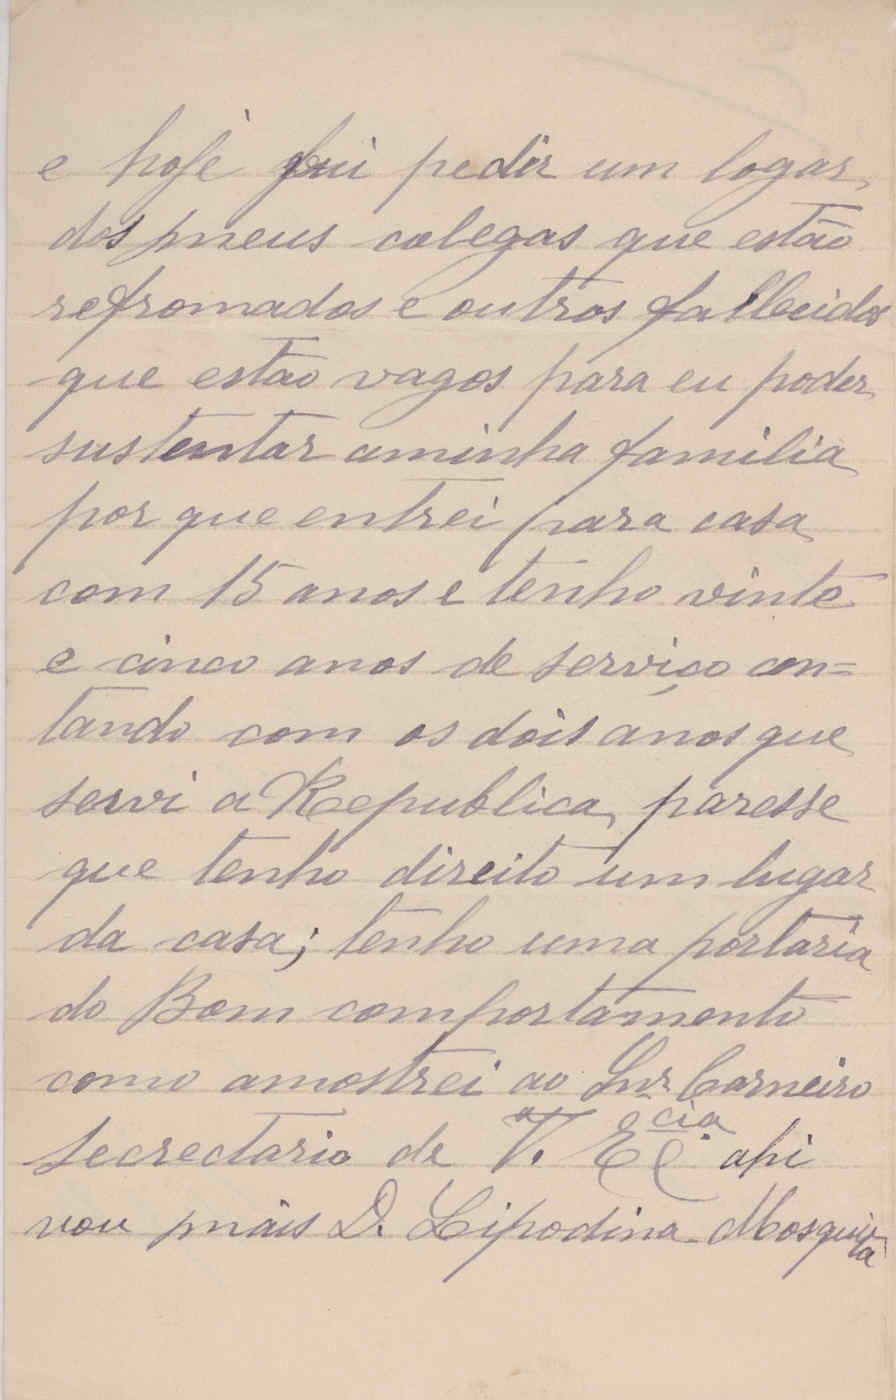 e hoje fui pedir um logar
dos meus colegas que estão
refromados e outros fallecidos
que estão vagos para eu poder
sustentar aminha familia
por que entrei para casa
com 15 anos e tenho vinte
e cinco anos de serviço con=
tando com os dois anos que
servi a Republica, paresse
que tenho direito um lugar
da casa; tenho uma portaria
do Bom comportamento
como amostrei ao Snr Carneiro
secrectario de V. Ecia ahi
vou mais D. Lipodina Mosquira